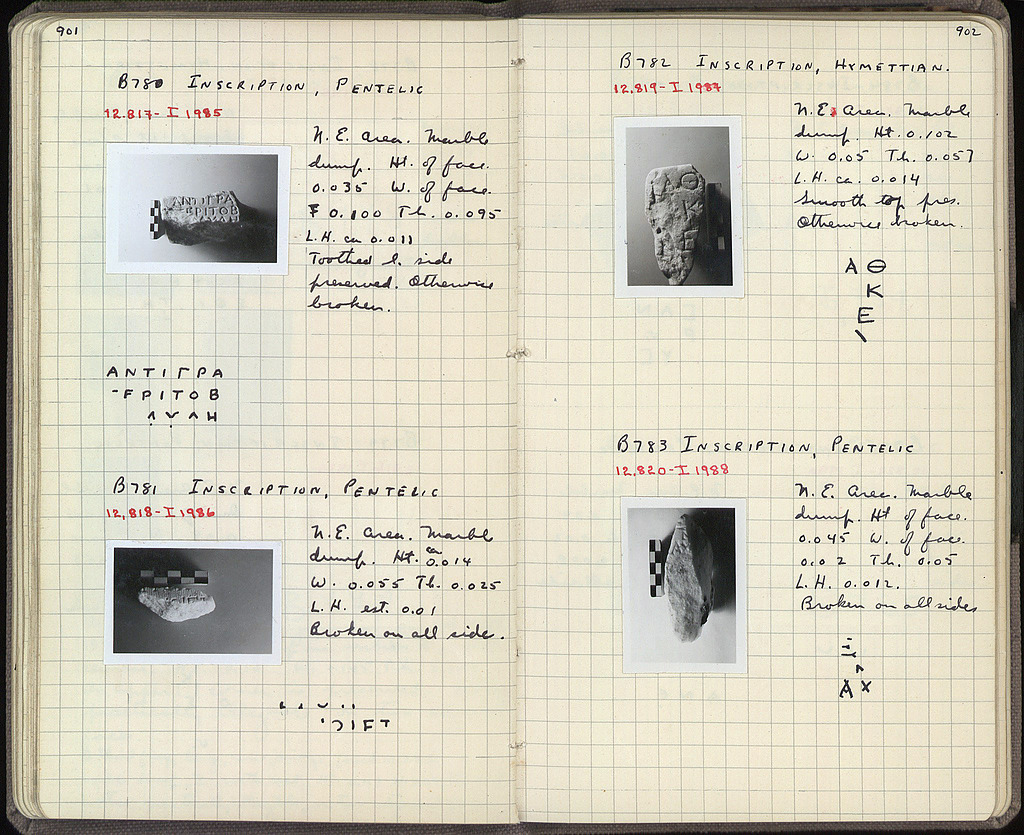 901
B780 INSCRIPTION, PENTELIC
12.817-I 1985
N. E. Area. Marble
dump. Ht. of face.
0.035 W. of face.
0.100 Th. 0.095
L.H. ca 0.011
Toothed l. side
preserved. Otherwise
broken.
ΑΝΤΙΓΡΑ
ΡΙΤΟΒ
ΛΥΛΗ
B781 INSCRIPTION, PENTELIC
12,818-I 1986
N. E. Area. Marble
dump. Ht. ca 0.014
W. 0.055 Th. 0.025
L. H. est. 0.01
Broken on all side.
ΙFΤ
902
B782 INSCRIPTION, HYMETTIAN.
12.819-I 1987
N. E. Area. Marble
dump. Ht. 0.102
W. 0.05 Th. 0.057
L. H. ca. 0.014
Smooth top pres.
Otherwise broken.
Α Θ
Κ
Ε
\
B783 INSCRIPTION, PENTELIC
12.820-I 1988
N. E. Area. Marble
dump. Ht of face.
0.045 W. of face.
0.02 Th. 0.05
L. H. 0.012.
Broken on all sides
Α Χ